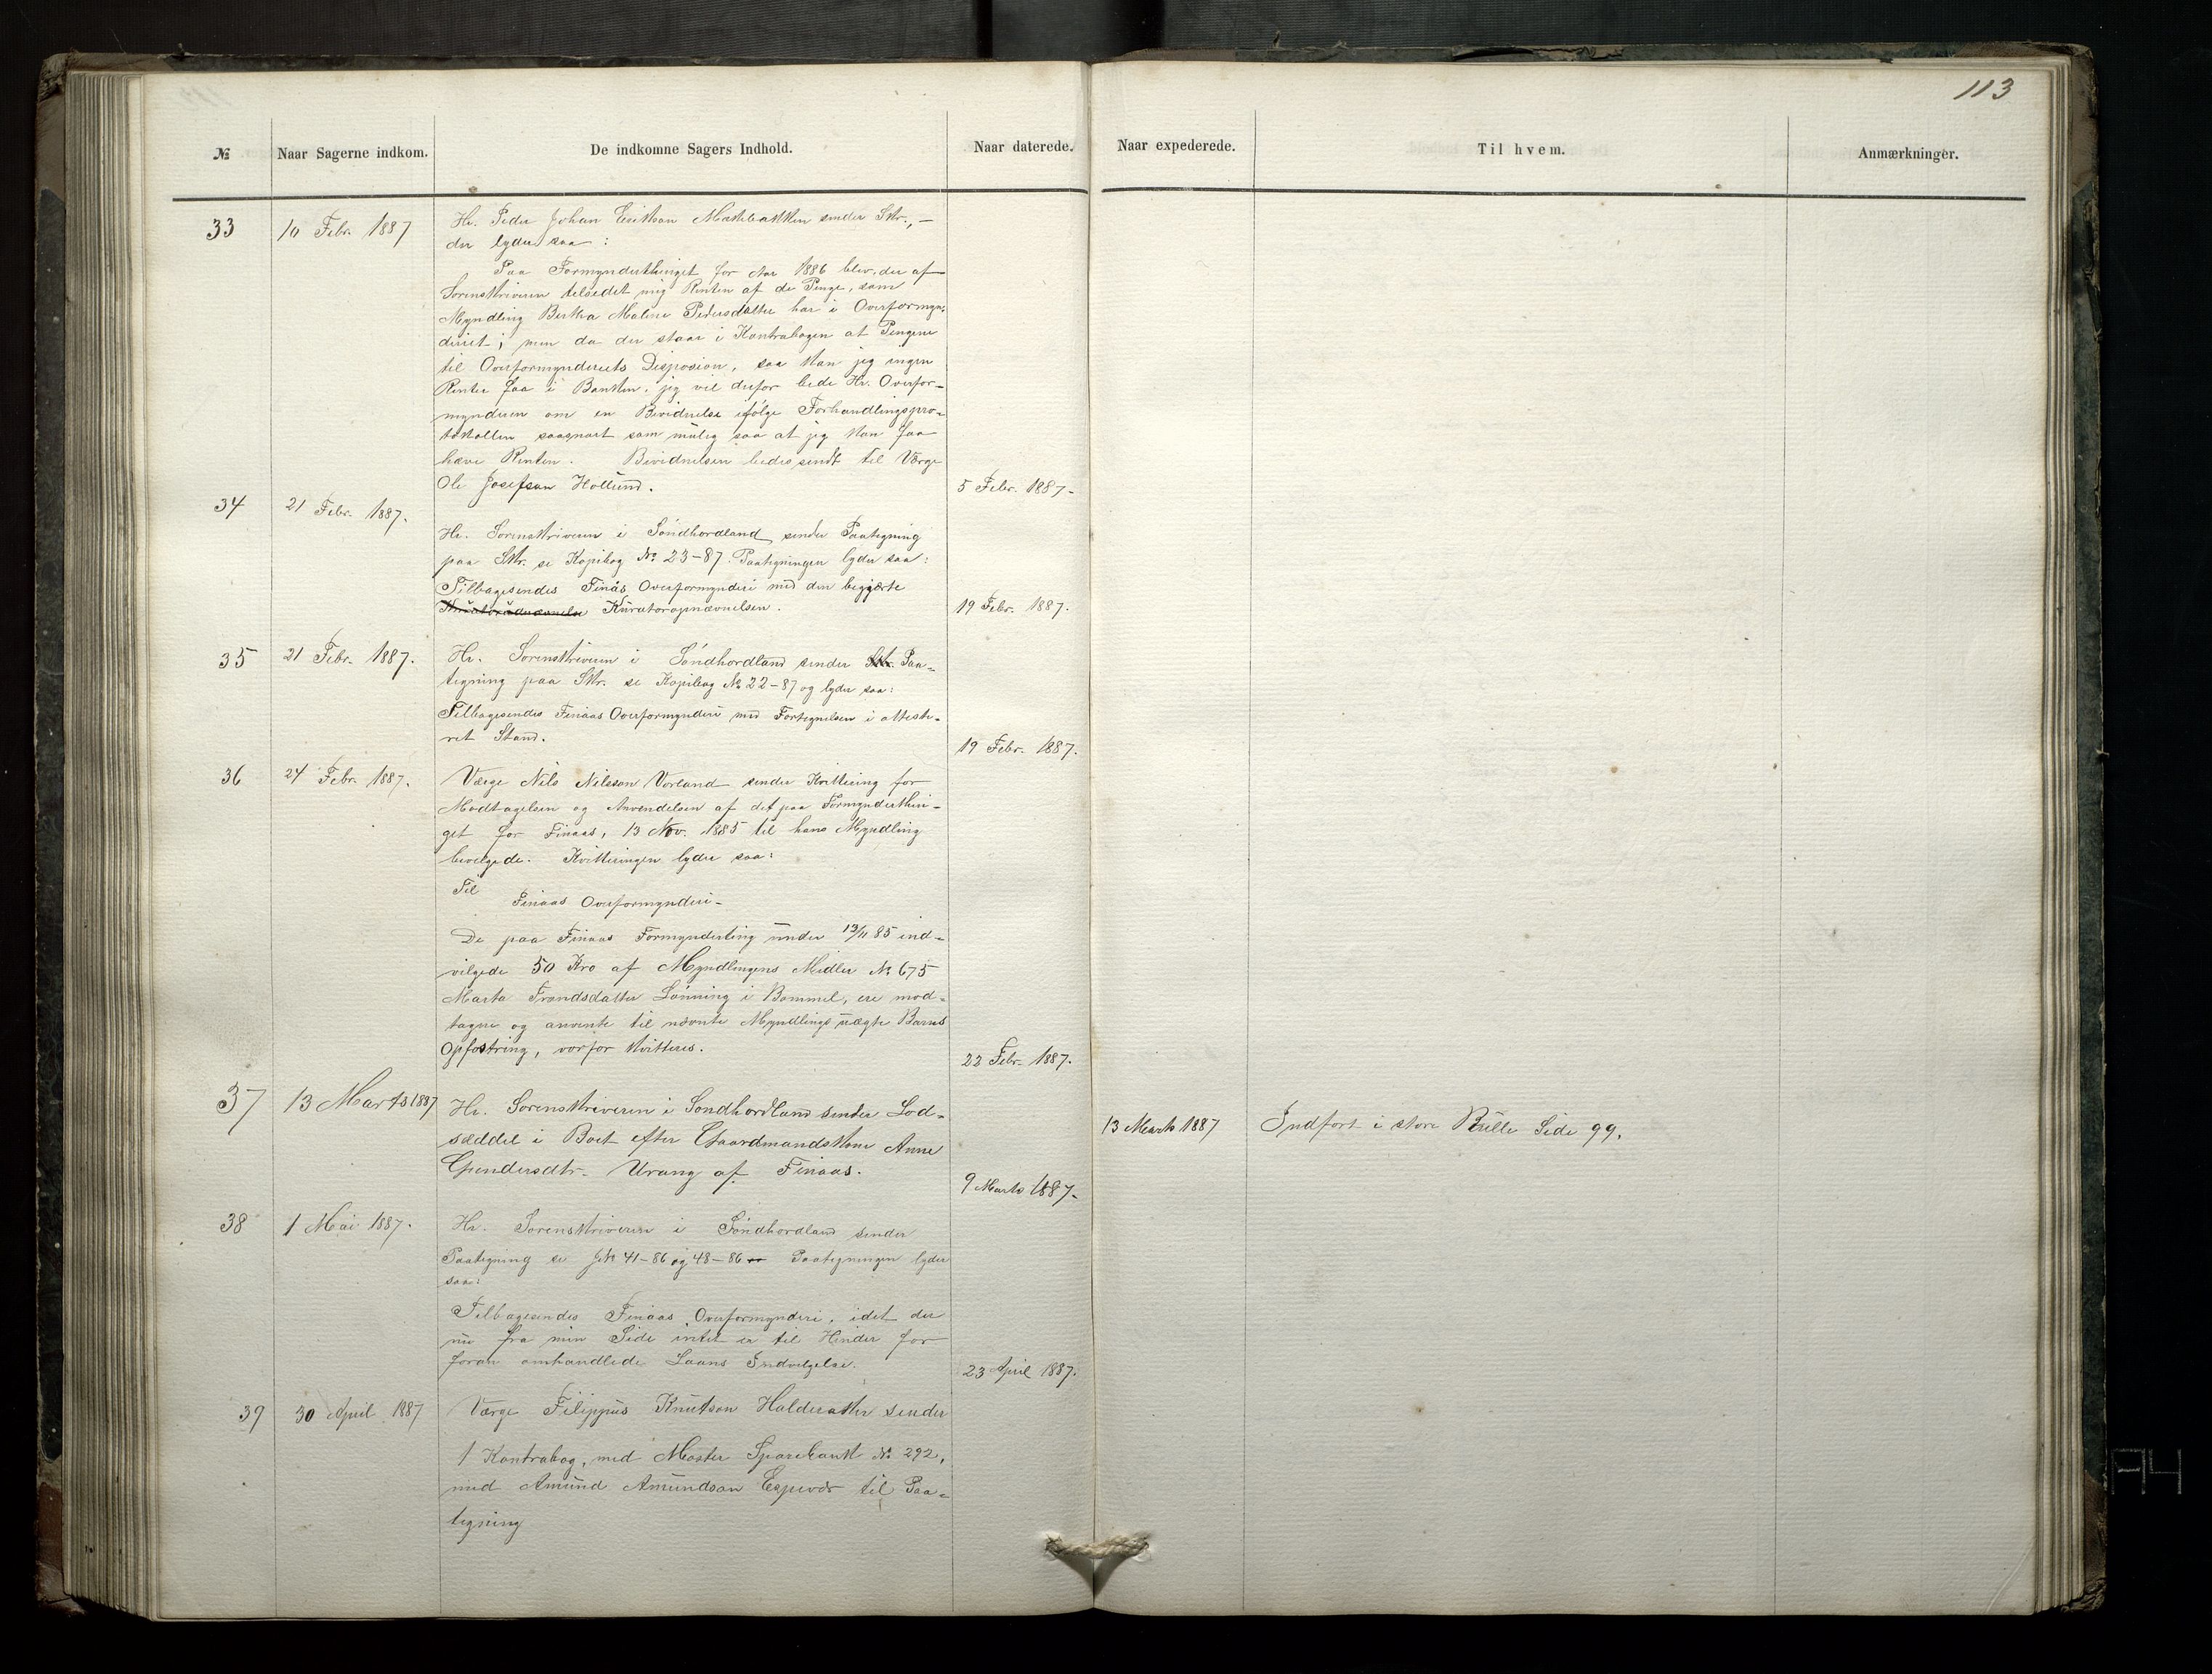 113
№ Naar Sagerne indkom. De indkomne Sagers Indhold. Naar daterede. Naar expederede. Til hvem. Anmærkninger.
33 10 Febr. 1887 Hr. Peder Johan sender Skr.,
der lyder saa :
Paa Formynderthinget for Aar 1886 blev der af
Sorenskriveren tilsedet mig Renten af de Penge, som
Myndling Bertha Malene Pedersdatter har i Overformyn-
deriet; men da der staar i Kontrabogen at Pengene
til Overformynderiets Disposion, saa kan jeg ingen
Renter faa i Banken. jeg vil derfor bede Hr. Overfor-
mynderen om en Bevidnelse ifølge Forhandlingspro-
tokollen saasnart som mulig saa at jeg kan faa
hæve Renten. Bevidnelsen bedes sendt til Værge
Ole Josefson Hollund. 5 Febr. 1887-
34 21 Febr. 1887.
Hr. Sorenskriveren i Söndhordland sender Paategning
paa Skr. se Kopibog № 23-87. Paategningen lyder saa:
Tilbagesendes Finås Overformynderi med den begjærte
Kuratoropnævnelsen. 19 Febr. 1887.
35 21 Febr. 1887. Hr. Sorenskriveren i Söndhordland sender Skr. Paa-
tegning paa Skr. se Kopibog № 22-87 og lyder saa:
Tilbagesendes Finaas Overformynderi med Fortegnelsen i atteste-
ret Stand. 19 Febr. 1887.
36 24 Febr. 1887. Værge Nils Nilsson Vorland sender Kvittering for
Modtagelsen og Anvendelsen af det paa Formynderthin-
get for Finaas, 13 Nov. 1885 til hans Myndling
bevelgede. Kvitteringen lyder saa:
Til
Finaas Overformynderi-
De paa Finaas Formynderting under 13/11 85 ind-
velgede 50 Kro af Myndlingens Midler № 675
Marta Trondsdatter Lönning i Bommel, ere mod-
tagne og anvente til nævnte Myndlings uægte Barns
Opfostring, vorfor kvitteres. 22 Febr. 1887.
37 13 Marts 1887 Hr. Sorenskriveren i Söndhordland sender Lod-
sæddel i Boet efter Gaardmandskone Anne
Gundersdtr. Urang af Finaas. 9 Marts 1887- 13 Marts 1887 Indfört i store Rulle Side 99.
38 1 Mai 1887. Hr. Sorenskriveren i Söndhordland sender
Paategning se J№ 41-86 og 48-86 Paategningen lyder
saa:
Tilbagesendes Finaas Overformynderi, idet der
nu fra min Side intet er til Hinder for
foran omhandlede Laans Indvelgelse. 23 April 1887.
39 30 April 1887 Værge Filippus Knutson Halderaker sender
1 Kontrabog, med Moster Sparebank № 292,
med Amund Amundson Espevær til Paa-
tegning